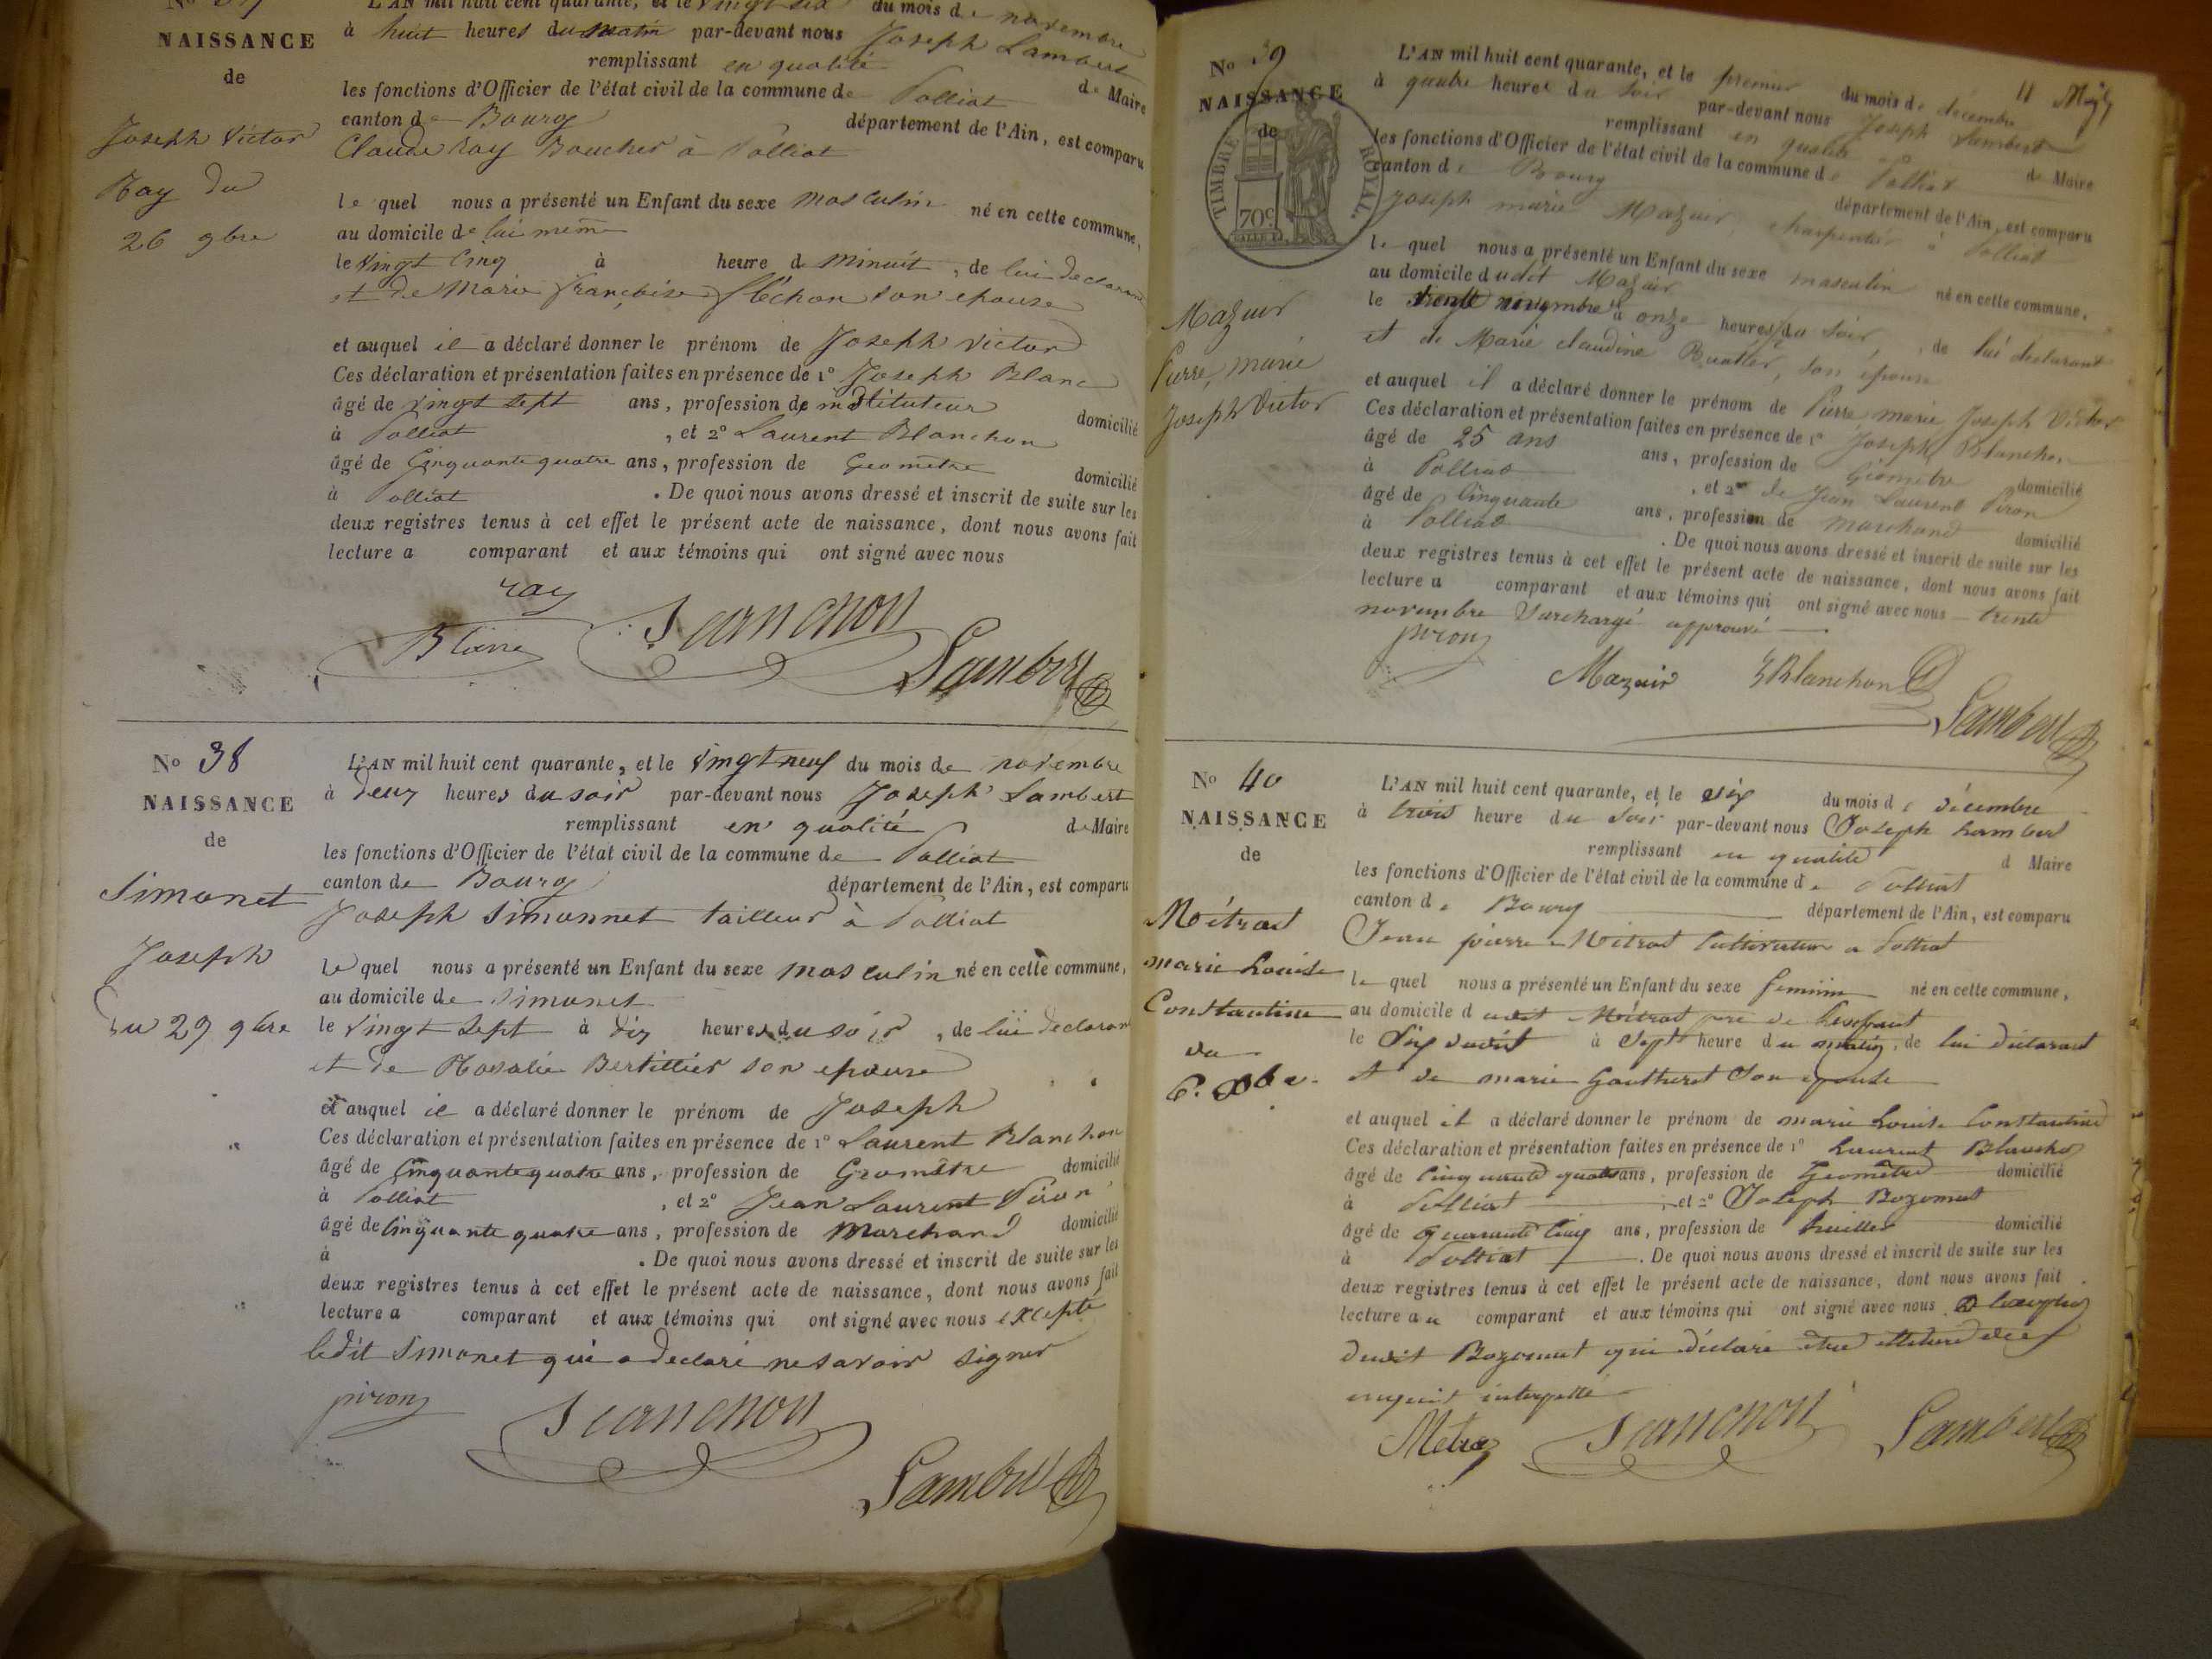 No 37
NAISSANCE
de
Joseph Victor
Ray du
26 9bre
L'AN mil huit cent quarante, et le vingt six du mois de novembre
à huit heures du matin par-devant nous Joseph Lambert
remplissant en qualité de Maire
les fonctions d'Officier de l'état civil de la commune de Polliat
canton de Bourg département de l'Ain, est comparu
Claude Ray Boucher à Polliat
le quel nous a présenté un Enfant du sexe masculin né en cette commune,
au domicile de lui même
le vingt cinq à heure d minuit, de lui declarant
et de Marie françoise fléchon son epouse
et auquel il a déclaré donner le prénom de Joseph victor
Ces déclaration et présentation faites en présence de 1º Joseph Blanc
âgé de vingt sept ans, profession de instituteur domicilié
à Polliat, et 2º Laurent Blanchon
âgé de Cinquante quatre ans, profession de Geometre domicilié
à Polliat. De quoi nous avons dressé et inscrit de suite sur les
deux registres tenus à cet effet le présent acte de naissance, dont nous avons fait
lecture a comparant et aux témoins qui ont signé avec nous
ray
Blanc
Lambert
No 38
NAISSANCE
de
Simonet
Joseph
du 29 9bre
L'AN mil huit cent quarante, et le vingt neuf du mois de novembre
à deux heures du soir par-devant nous Joseph Lambert
remplissant en qualité de Maire
les fonctions d'Officier de l'état civil de la commune de Polliat
canton de Bourg département de l'Ain, est comparu
Joseph Simonnet tailleur à Polliat
le quel nous a présenté un Enfant du sexe masculin né en cette commune,
au domicile de Simonet
le vingt sept à dix heures du soir, de lui declarant
et de Rosalie Bertillier son epouse
et auquel il a déclaré donner le prénom de Joseph
Ces déclaration et présentation faites en présence de 1º Laurent Blanchon
âgé de Cinquante quatre ans, profession de Géomêtre domicilié
à Polliat, et 2º Jean Laurent Piron
âgé de Cinquante quatre ans, profession de Marchand domicilié
à . De quoi nous avons dressé et inscrit de suite sur les
deux registres tenus à cet effet le présent acte de naissance, dont nous avons fait
lecture a comparant et aux témoins qui ont signé avec nous excepté
ledit Simonet qui a declaré ne savoir signer
piron
Lambert
No 39
NAISSANCE
de
TIMBRE ROYAL
70c.
Mazuir
Pierre, marie
Joseph Victor
L'AN mil huit cent quarante, et le premier du mois de decembre
à quatre heures du soir par-devant nous Joseph Lambert
remplissant en qualité de Maire
les fonctions d'Officier de l'état civil de la commune de Polliat
canton de Bourg département de l'Ain, est comparu
Joseph marie Mazuir, charpentier à Polliat
le quel nous a présenté un Enfant du sexe masculin né en cette commune,
au domicile dudit Mazuir
le trente novembre à onze heures du soir, de lui déclarant
et de Marie claudine Buatier, son epouse
et auquel il a déclaré donner le prénom de Pierre, marie Joseph Victor
Ces déclaration et présentation faites en présence de 1º Joseph Blanchon
âgé de 25 ans ans, profession de Géometre domicilié
à Polliat, et 2º de Jean Laurent Piron
âgé de Cinquante ans, profession de marchand domicilié
à Polliat. De quoi nous avons dressé et inscrit de suite sur les
deux registres tenus à cet effet le présent acte de naissance, dont nous avons fait
lecture a comparant et aux témoins qui ont signé avec nous — trente
novembre surchargé approuvé
piron
Mazuir
Blanchon
Lambert
No 40
NAISSANCE
de
Métrat
marie Louise
Constantine
du
6. Xbre
L'AN mil huit cent quarante, et le six du mois de décembre
à trois heure du soir par-devant nous Joseph Lambert
remplissant en qualité d Maire
les fonctions d'Officier de l'état civil de la commune de Polliat
canton de Bourg département de l'Ain, est comparu
Jean pierre Métrat Cultivateur a Polliat
le quel nous a présenté un Enfant du sexe feminin né en cette commune,
au domicile dudit Métrat pere de Lenfant
le Six dudit à Sept heure du matin, de lui déclarant
et de marie Gautheret Son epouse
et auquel il a déclaré donner le prénom de marie Louise Constantine
Ces déclaration et présentation faites en présence de 1º Laurent Blanchon
âgé de Cinquante quatre ans, profession de Geomêtre domicilié
à Polliat, et 2º Joseph Bozonnet
âgé de quarante Cinq ans, profession de huillier domicilié
à Polliat. De quoi nous avons dressé et inscrit de suite sur les
deux registres tenus à cet effet le présent acte de naissance, dont nous avons fait
lecture au comparant et aux témoins qui ont signé avec nous
dudit Bozonnet qui déclaré être
interpellé
Metra
Lambert